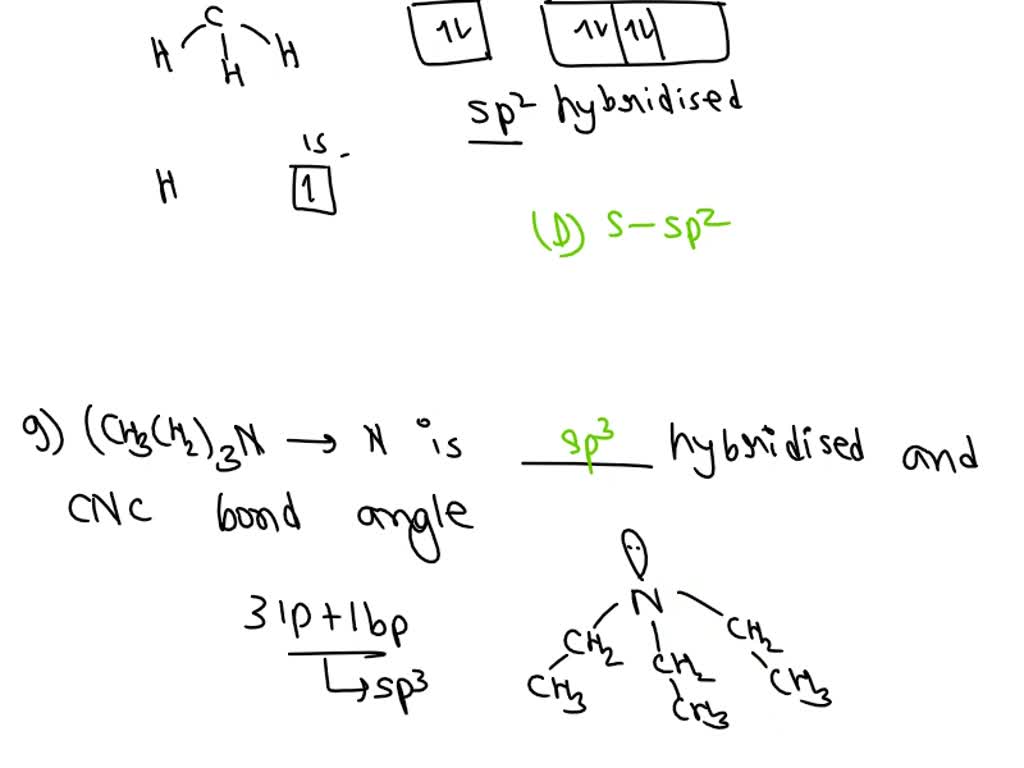 C
H H H
1L 1L 1L
sp² hybridised
1s
H 1
(D) s-sp²
9) (CH3CH2)3N → N is sp³ hybridised and
CNC bond angle
3lp+1bp
↳ sp³
N
CH2 CH2 CH2
CH3 CH3 CH3